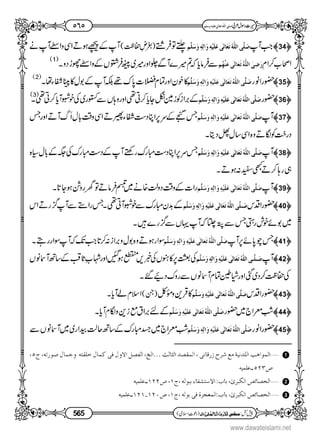 سیرتِ رسولِ عربی صَلَّی اللہُ تَعَالٰی عَلَیْہِ وَسَلَّم
۵۶۵
﴿34﴾ جب آپ صَلَّی اللہُ تَعَالٰی عَلَیْہِ وَاٰلِہٖ وَسَلَّم چلتے تو فرشتے (بغرض حفاظت) آپ کے پیچھے ہوتے اسی واسطے آپ نے
اصحاب کرام رَضِیَ اللہُ تَعَالٰی عَنْہُم سے فرمایا کہ تم میرے آگے چلو اور میری پیٹھ فرشتوں کے واسطے چھوڑ دو۔ (1)
﴿35﴾ حضورِ انور صَلَّی اللہُ تَعَالٰی عَلَیْہِ وَاٰلِہٖ وَسَلَّم کا خون اور تمام فضلات پاک تھے بلکہ آپ کے بول کا پینا شفا تھا۔ (2)
﴿36﴾ حضور صَلَّی اللہُ تَعَالٰی عَلَیْہِ وَاٰلِہٖ وَسَلَّم کے براز کو زمین نگل جایا کرتی تھی اور وہاں سے کستوری کی خوشبو آیا کرتی تھی۔ (3)
﴿37﴾ آپ صَلَّی اللہُ تَعَالٰی عَلَیْہِ وَاٰلِہٖ وَسَلَّم جس گنجے کے سر پر اپنا دست شفا پھیرتے اسی وقت بال اُگ آتے اور جس
درخت کو لگاتے وہ اسی سال پھل دیتا۔
﴿38﴾ آپ صَلَّی اللہُ تَعَالٰی عَلَیْہِ وَاٰلِہٖ وَسَلَّم جس سر پر اپنا دست مبارک رکھتے آپ کے دست مبارک کی جگہ کے بال سیاہ
ہی رہا کرتے کبھی سفید نہ ہوتے۔
﴿39﴾ آپ صَلَّی اللہُ تَعَالٰی عَلَیْہِ وَاٰلِہٖ وَسَلَّم رات کے وقت دولت خانے میں تبسم فرماتے تو گھر روشن ہو جاتا۔
﴿40﴾ حضورِ اقدس صَلَّی اللہُ تَعَالٰی عَلَیْہِ وَاٰلِہٖ وَسَلَّم کے بدن مبارک سے خوشبو آتی تھی۔ جس راستے سے آپ گزرتے اس
میں بوئے خوش رہتی جس سے پتہ چلتا کہ آپ یہاں سے گزرے ہیں۔
﴿41﴾ جس چوپائے پر آپ صَلَّی اللہُ تَعَالٰی عَلَیْہِ وَاٰلِہٖ وَسَلَّم سوار ہوتے وہ بول و براز نہ کرتا جب تک کہ آپ سوار رہتے۔
﴿42﴾ آپ صَلَّی اللہُ تَعَالٰی عَلَیْہِ وَاٰلِہٖ وَسَلَّم کی بعثت پر کاہنوں کی خبریں منقطع ہوگئیں اور شہاب ثاقب کے ساتھ آسمانوں
کی حفاظت کر دی گئی اور شیاطین تمام آسمانوں سے روک دیئے گئے۔
﴿43﴾ حضورِ اقدس صَلَّی اللہُ تَعَالٰی عَلَیْہِ وَاٰلِہٖ وَسَلَّم کا قرین و موکل (جن) اسلام لے آیا۔
﴿44﴾ شب معراج میں حضور صَلَّی اللہُ تَعَالٰی عَلَیْہِ وَاٰلِہٖ وَسَلَّم کے لئے براق مع زین و لگام آیا۔
﴿45﴾ حضورِ انور صَلَّی اللہُ تَعَالٰی عَلَیْہِ وَاٰلِہٖ وَسَلَّم شب معراج میں جسد مبارک کے ساتھ حالت بیداری میں آسمانوں سے
1 .....المواھب اللدنیۃ مع شرح زرقانی ، المقصد الثالث ...الخ، الفصل الاول فی کمال خلقتہ و جمال صورتہ، ج۵،
ص۵۲۳۔علمیہ
2 .....الخصائص الکبریٰ، باب: الاستشفاء ببولہ ، ج۱ ، ص۱۲۲۔علمیہ
3 .....الخصائص الکبریٰ، باب: المعجزۃ فی بولہ ، ج۱ ، ص۱۲۰-۱۲۱۔علمیہ
565
www.dawateislami.net